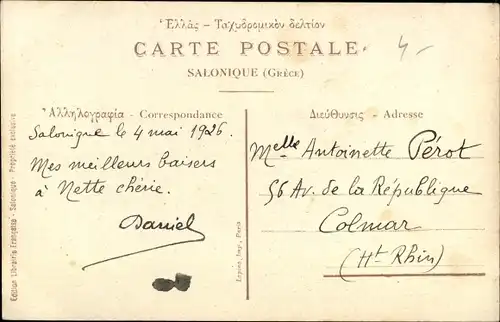 Ἑλλὰς – Ταχυδρομικὸν δελτίον
CARTE POSTALE
SALONIQUE (GRÈCE)
4-
Ἀλληλογραφία - Correspondance
Salonique le 4 mai 1926.
Mes meilleurs baisers
à Nette chérie.
Daniel
Διεύθυνσις - Adresse
Melle Antoinette Pérot
56 Av. de la République
Colmar
(Ht Rhin)
Edition Librairie Française - Salonique - Propriété exclusive
Imp., Paris